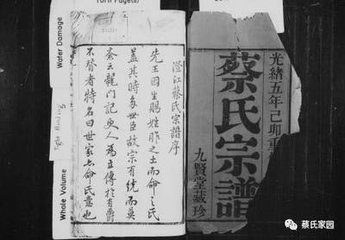 光緒五年己卯重
蔡氏宗譜
九賢堂藏珍
澄江蔡氏宗譜序
先王因生賜姓胙之土而命之氏
蓋其時each世臣故宗有統而莫
紊云龍門記史人為立傳於有爵
不替者特名曰世家亦命氏意也
Water Damage
Tight Binding
Whole Volume
蔡氏家园